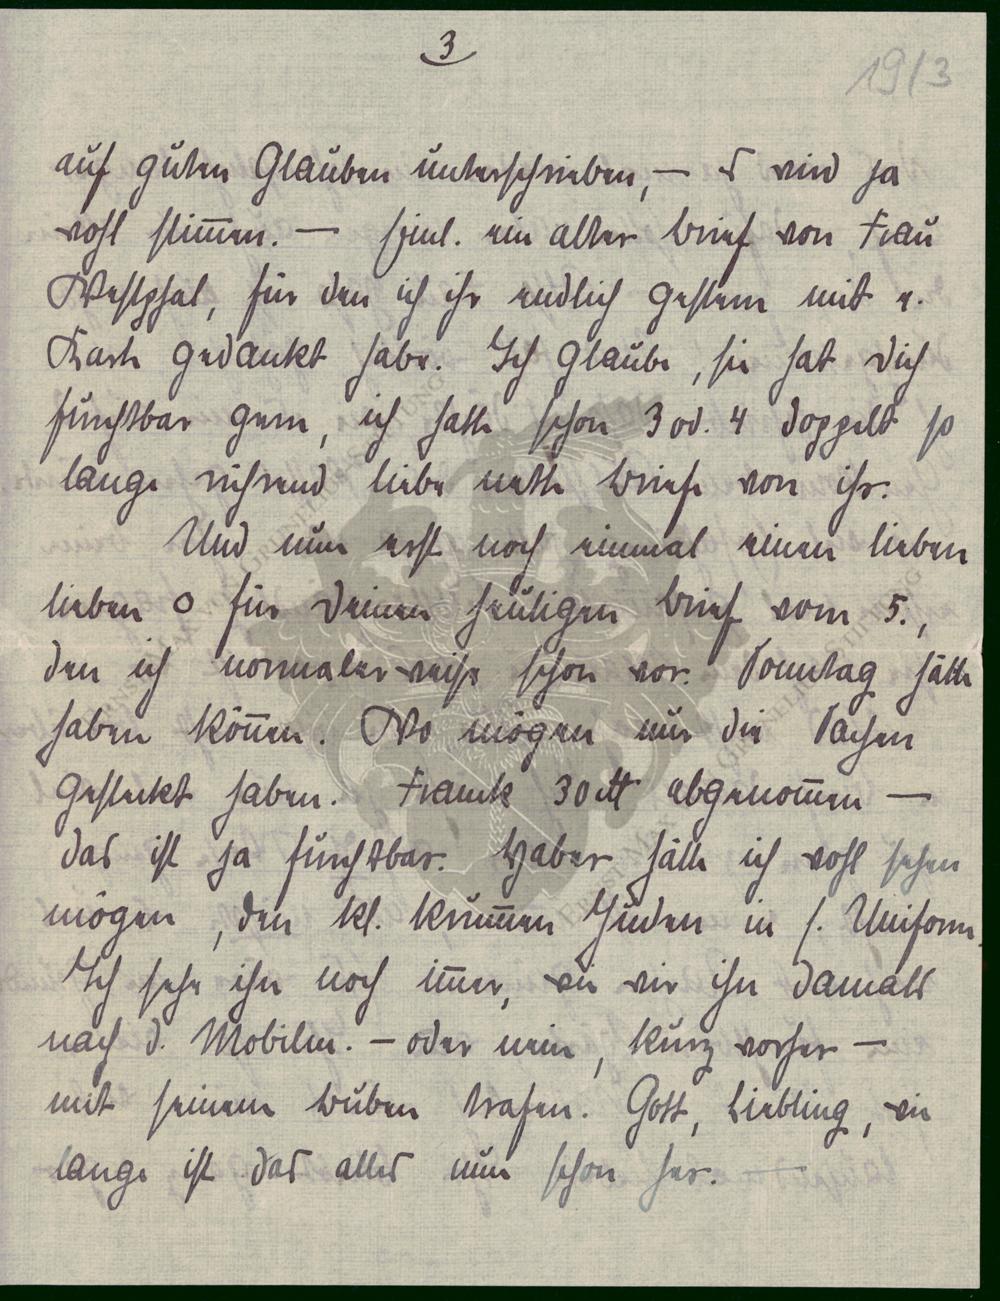 3
19/3
auf guten Glauben unterschrieben, — es wird ja
wohl stimmen. — Heut. ein alter Brief von Frau
Westphal, für den ich ihr endlich gestern mit e.
Karte gedankt habe. Ich glaube, sie hat Dich
furchtbar gern, ich hatte schon 3 od. 4 doppelt so
lange rührend liebe nette Briefe von ihr.
Und nun erst noch einmal einen lieben
lieben O für Deinen heutigen Brief vom 5.,
den ich normalerweise schon vor. Sonntag hätte
haben können. Wo mögen nur die Sachen
gesteckt haben. Franck 30 ℔ abgenommen —
das ist ja furchtbar. Haber hätte ich wohl sehen
mögen, den kl. krummen Juden in s. Uniform.
Ich sehe ihn noch immer, wie wir ihn damals
nach d. Mobilm. — oder nein, kurz vorher —
mit seinem Buben trafen. Gott, Liebling, wie
lange ist das alles nun schon her. —